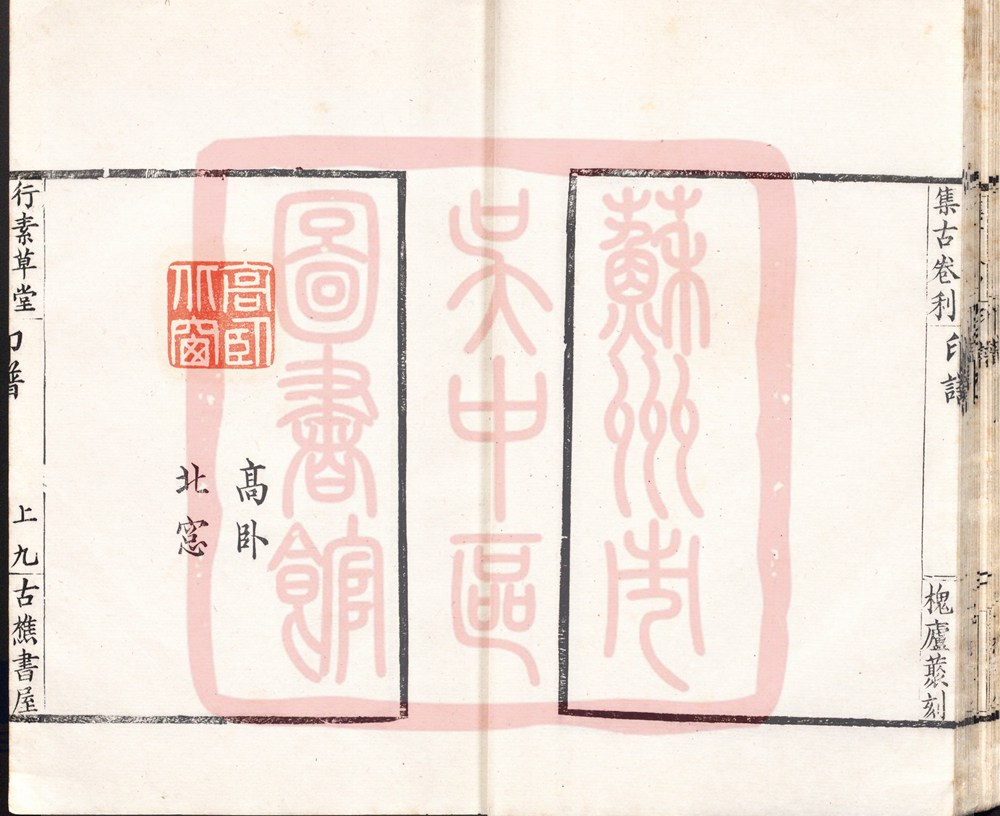 集古卷利
印譜
槐廬叢刻
蘇州市
吳中區
圖書館
高臥
北窗
高卧
北窓
行素草堂
印譜
上 九
古樵書屋